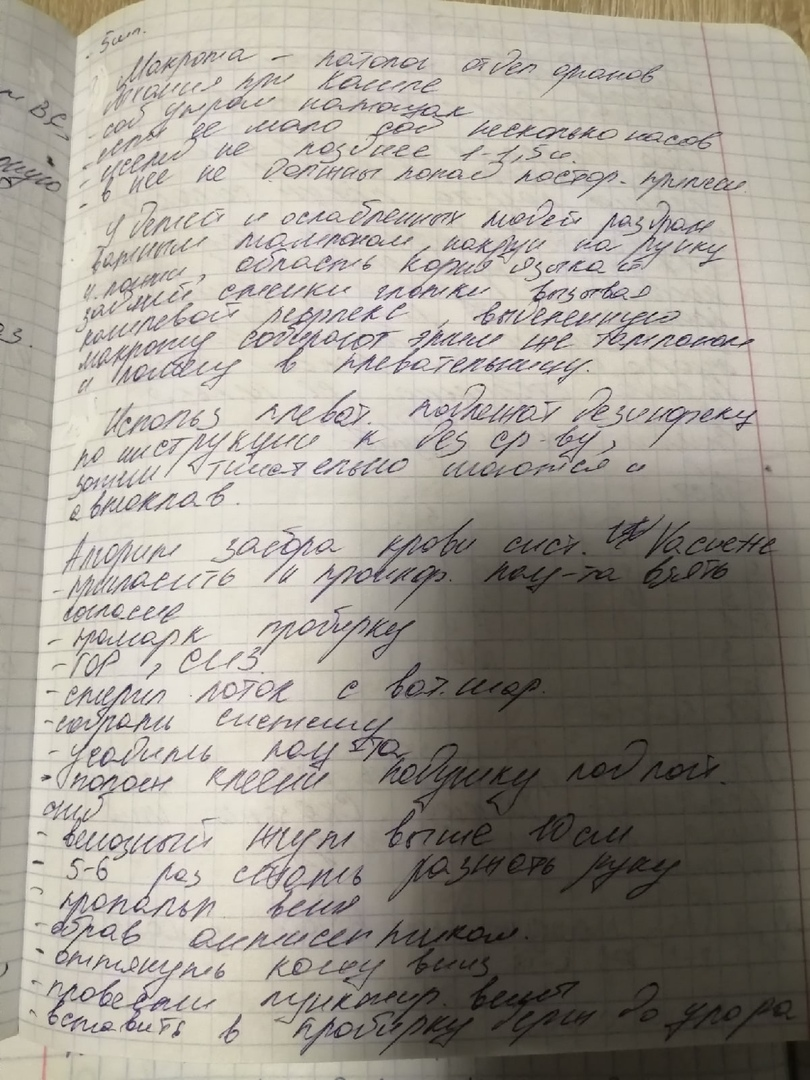 - 5мл.
Макрота - патолог отдел органов
дыхания при кашле
- соб утром натощак
- если ее мало соб несколько часов
- исслед не позднее 1-1,5 ч.
- в нее не должны попад постор. примеси
У детей и ослабленных людей раздраж
ватным тампоном накруч на ручку
и. область корня языка и
задней стенки глотки вызывая
кашлевой рефлекс, выделенную
макроту собирают этим же тампоном
и помещ в плевательницу.
Использ плеват. подлежат дезинфекц
по инструкции к дез ср-ву,
затем тщательно моются и
автоклав.
Алгоритм забора крови сист. Vасuете
- пригласить и проинфор. пац-та взять
согласие
- промарк пробирку
- ГОР, СИЗ
- стерил лоток с ват. шар.
- собрать систему
- усадить пац-та
- полож клеен подушку под лок.
сгиб
- венозный жгут выше 10 см
- 5-6 раз сжать разжать руку
- пропальп. вена
- обраб антисептиком.
- оттянуть кожу вниз
- провести пунктир. вены
- вставить в пробирку держ до упора